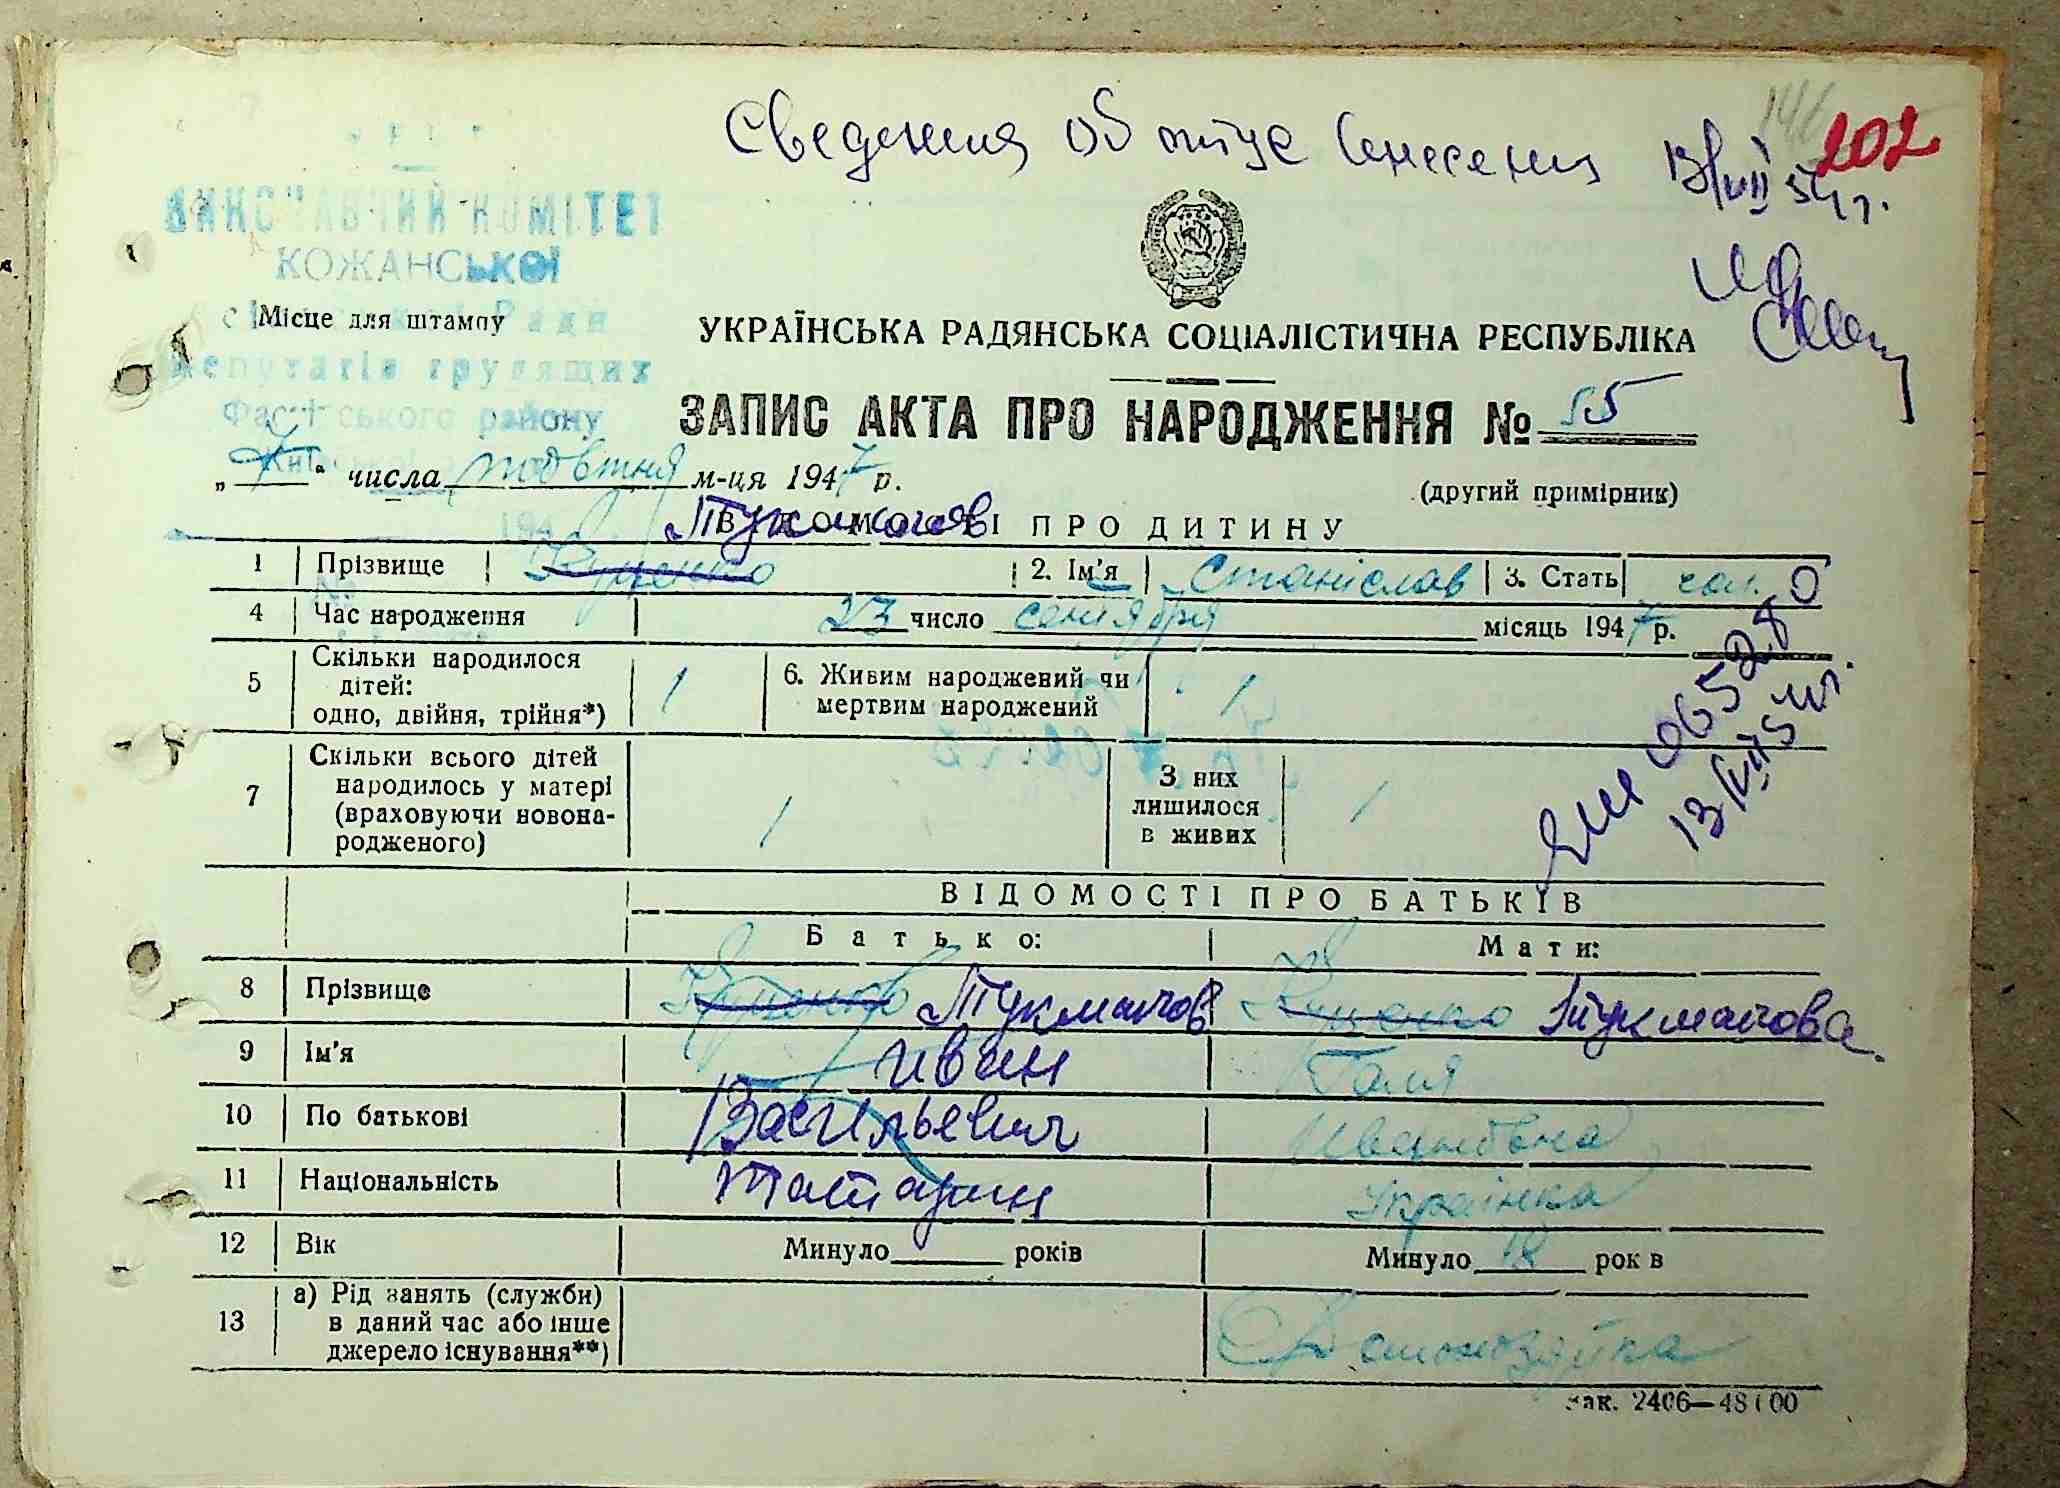 Сведения об отце внесены 13/VII 54 г.
202
ВИКОНАВЧИЙ КОМІТЕТ
КОЖАНСЬКОЇ
Ради
депутатів трудящих
Фастівського району
Місце для штампу
УКРАЇНСЬКА РАДЯНСЬКА СОЦІАЛІСТИЧНА РЕСПУБЛІКА
ЗАПИС АКТА ПРО НАРОДЖЕННЯ № 55
„7" числа жовтня м-ця 1947 р.
(другий примірник)
ВІДОМОСТІ ПРО ДИТИНУ
Тукмачов
1 Прізвище Куценко 2. Ім'я Станіслав 3. Стать чол.
4 Час народження 23 число сентября місяць 1947 р.
5 Скільки народилося дітей: одно, двійня, трійня*) 1 6. Живим народжений чи мертвим народжений 1
7 Скільки всього дітей народилось у матері (враховуючи новонародженого) 1 З них лишилося в живих 1
065280
13/VII 54 г.
ВІДОМОСТІ ПРО БАТЬКІВ
Батько: Мати:
8 Прізвище Куценко Тукмачов Куценко Тукмачова.
9 Ім'я Иван Галя
10 По батькові Васильевич Ивановна
11 Національність татарин Українка
12 Вік Минуло років Минуло 18 рок в
13 а) Рід занять (служби) в даний час або інше джерело існування**) Домохозяйка
Зак. 2406—48100